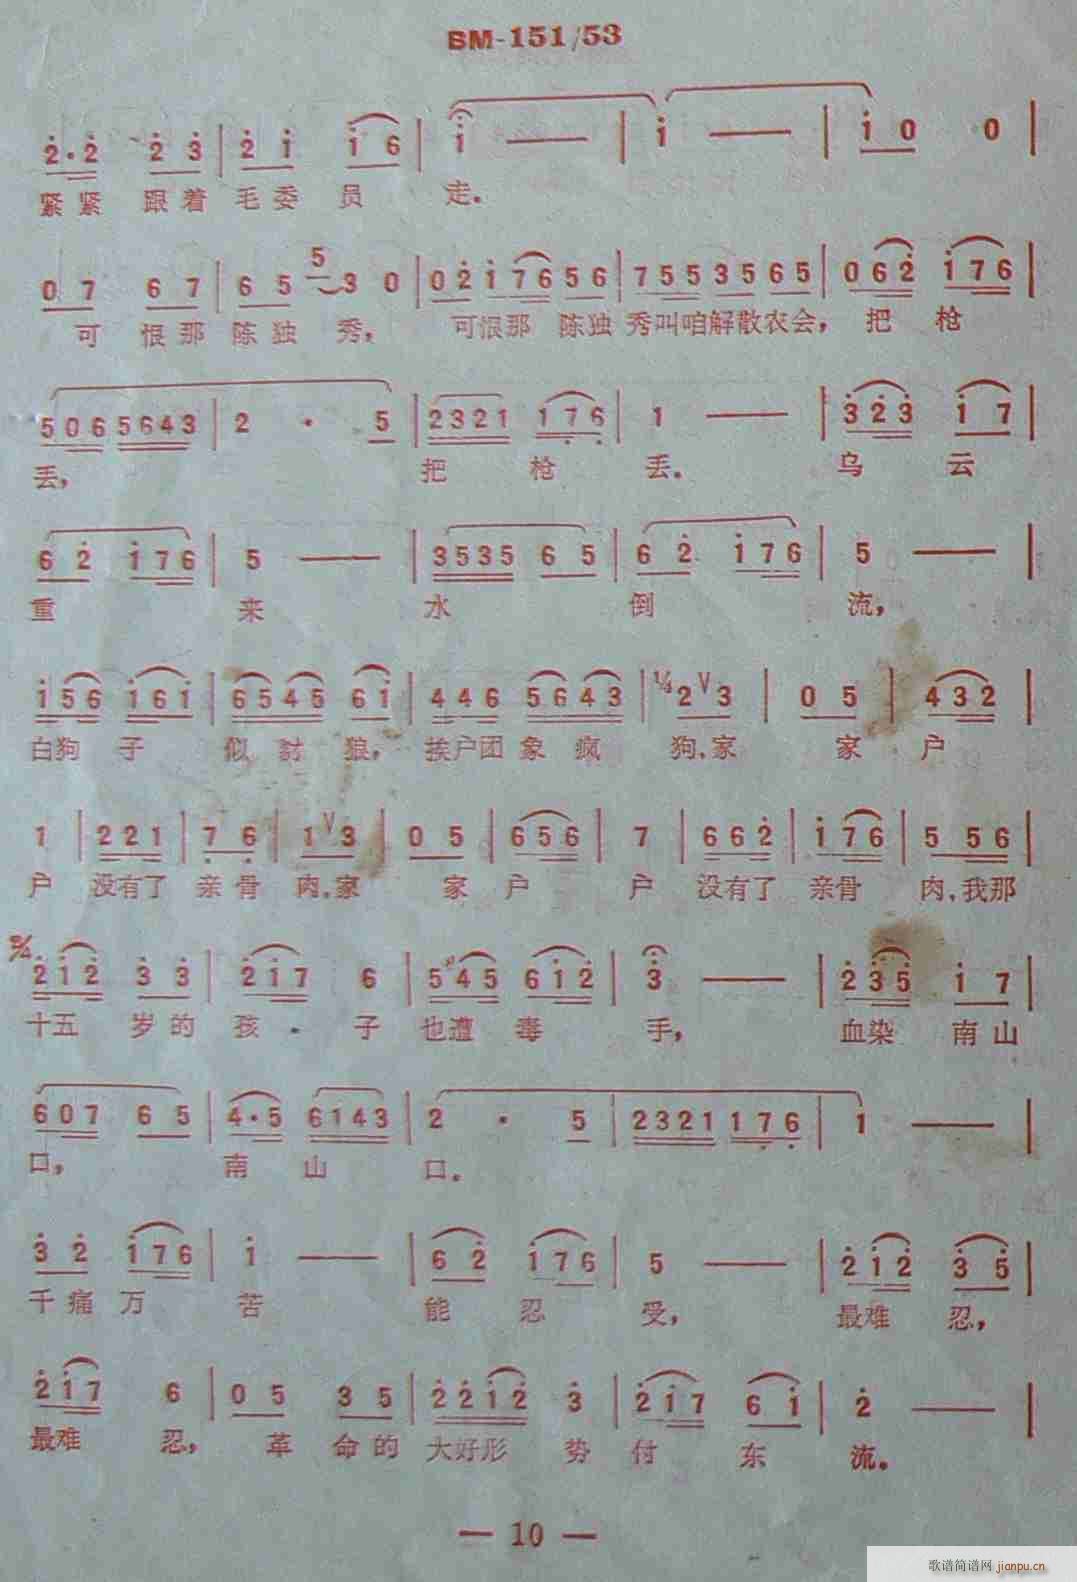 BM-151/53
2·2 2 3 | 2 1 1 6 | 1 — | 1 — | 1 0 0 |
紧紧 跟着 毛委 员 走。
0 7 6 7 | 6 5 5 3 0 | 0 2 1 7 6 5 6 | 7 5 5 3 5 6 5 | 0 6 2 1 7 6 |
可 恨那 陈独 秀, 可恨那 陈独 秀叫咱解散农会, 把 枪
5 0 6 5 6 4 3 | 2 · 5 | 2 3 2 1 1 7 6 | 1 — | 3 2 3 1 7 |
丢, 把 枪 丢。 乌 云
6 2 1 7 6 | 5 — | 3 5 3 5 6 5 | 6 2 1 7 6 | 5 — |
重 来 水 倒 流,
1 5 6 1 6 1 | 6 5 4 5 6 1 | 4 4 6 5 6 4 3 | 1/4 2 V 3 | 0 5 | 4 3 2 |
白狗 子 似 豺 狼, 挨户团 象 疯 狗,家 家 户
1 | 2 2 1 | 7 6 | 1 V 3 | 0 5 | 6 5 6 | 7 | 6 6 2 | 1 7 6 | 5 5 6 |
户 没有了 亲骨 肉,家 家 户 户 没有了 亲骨 肉,我那
2/4 2 1 2 3 3 | 2 1 7 6 | 5 4 5 6 1 2 | 3 — | 2 3 5 1 7 |
十五 岁的 孩 子 也遭 毒 手, 血染 南山
6 0 7 6 5 | 4·5 6 1 4 3 | 2 · 5 | 2 3 2 1 1 7 6 | 1 — |
口, 南 山 口。
3 2 1 7 6 | 1 — | 6 2 1 7 6 | 5 — | 2 1 2 3 5 |
千痛万 苦 能 忍 受, 最难 忍,
2 1 7 6 | 0 5 3 5 | 2 2 1 2 3 | 2 1 7 6 1 | 2 — |
最难 忍, 革 命的 大好形 势 付 东 流。
— 10 —
歌谱简谱网 jianpu.cn